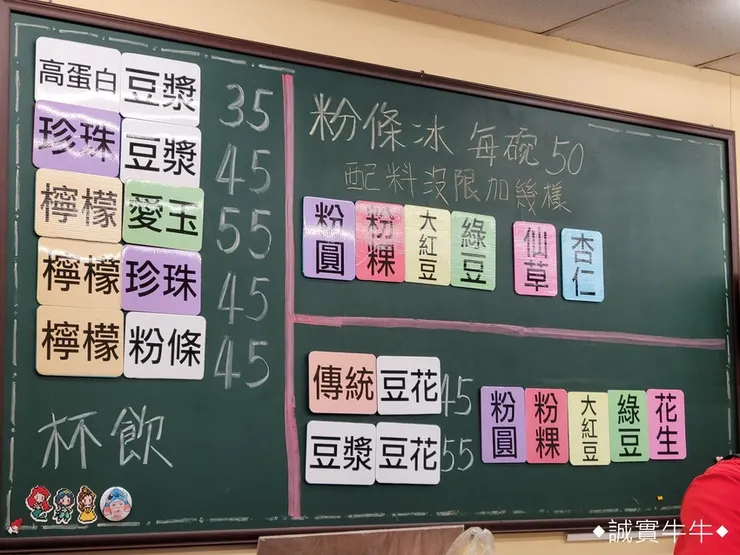 高蛋白 豆漿 35
珍珠 豆漿 45
檸檬 愛玉 55
檸檬 珍珠 45
檸檬 粉條 45
杯飲
粉條冰 每碗50
配料沒限加幾樣
粉圓 粉粿 大紅豆 綠豆 仙草 杏仁
傳統 豆花 45
豆漿 豆花 55
粉圓 粉粿 大紅豆 綠豆 花生
◆誠實牛牛◆